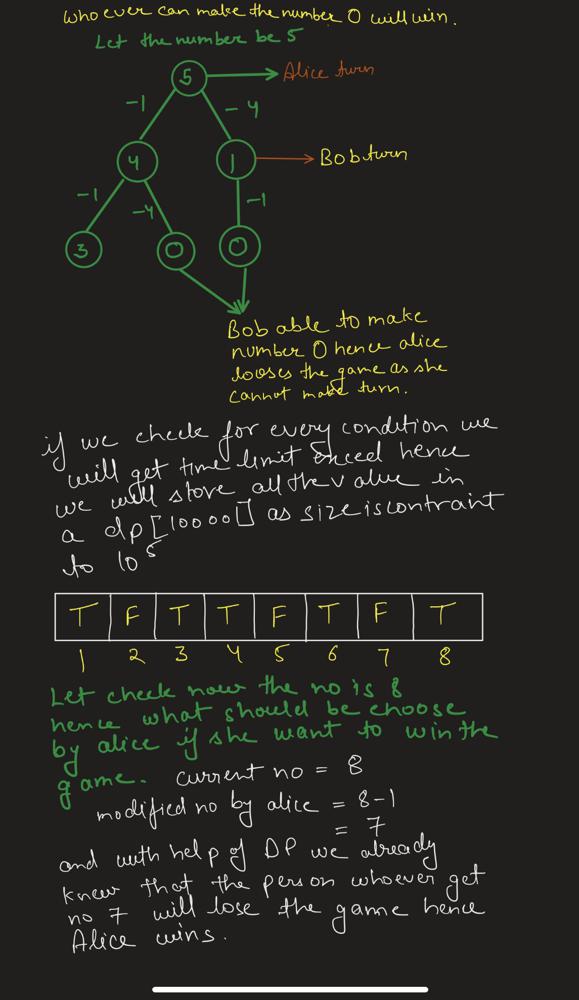 who ever can make the number 0 will win.
Let the number be 5
5
Alice turn
-1
-4
4
1
Bob turn
-1
-4
-1
3
0
0
Bob able to make
number 0 hence alice
looses the game as she
cannot make turn.
if we check for every condition we
will get time limit exceed hence
we will store all the value in
a dp[10000] as size is contraint
to 10^5
T F T T F T F T
1 2 3 4 5 6 7 8
Let check now the no is 8
hence what should be choose
by alice if she want to win the
game.
current no = 8
modified no by alice = 8-1
= 7
and with help of DP we already
knew that the person whoever get
no 7 will lose the game hence
Alice wins.